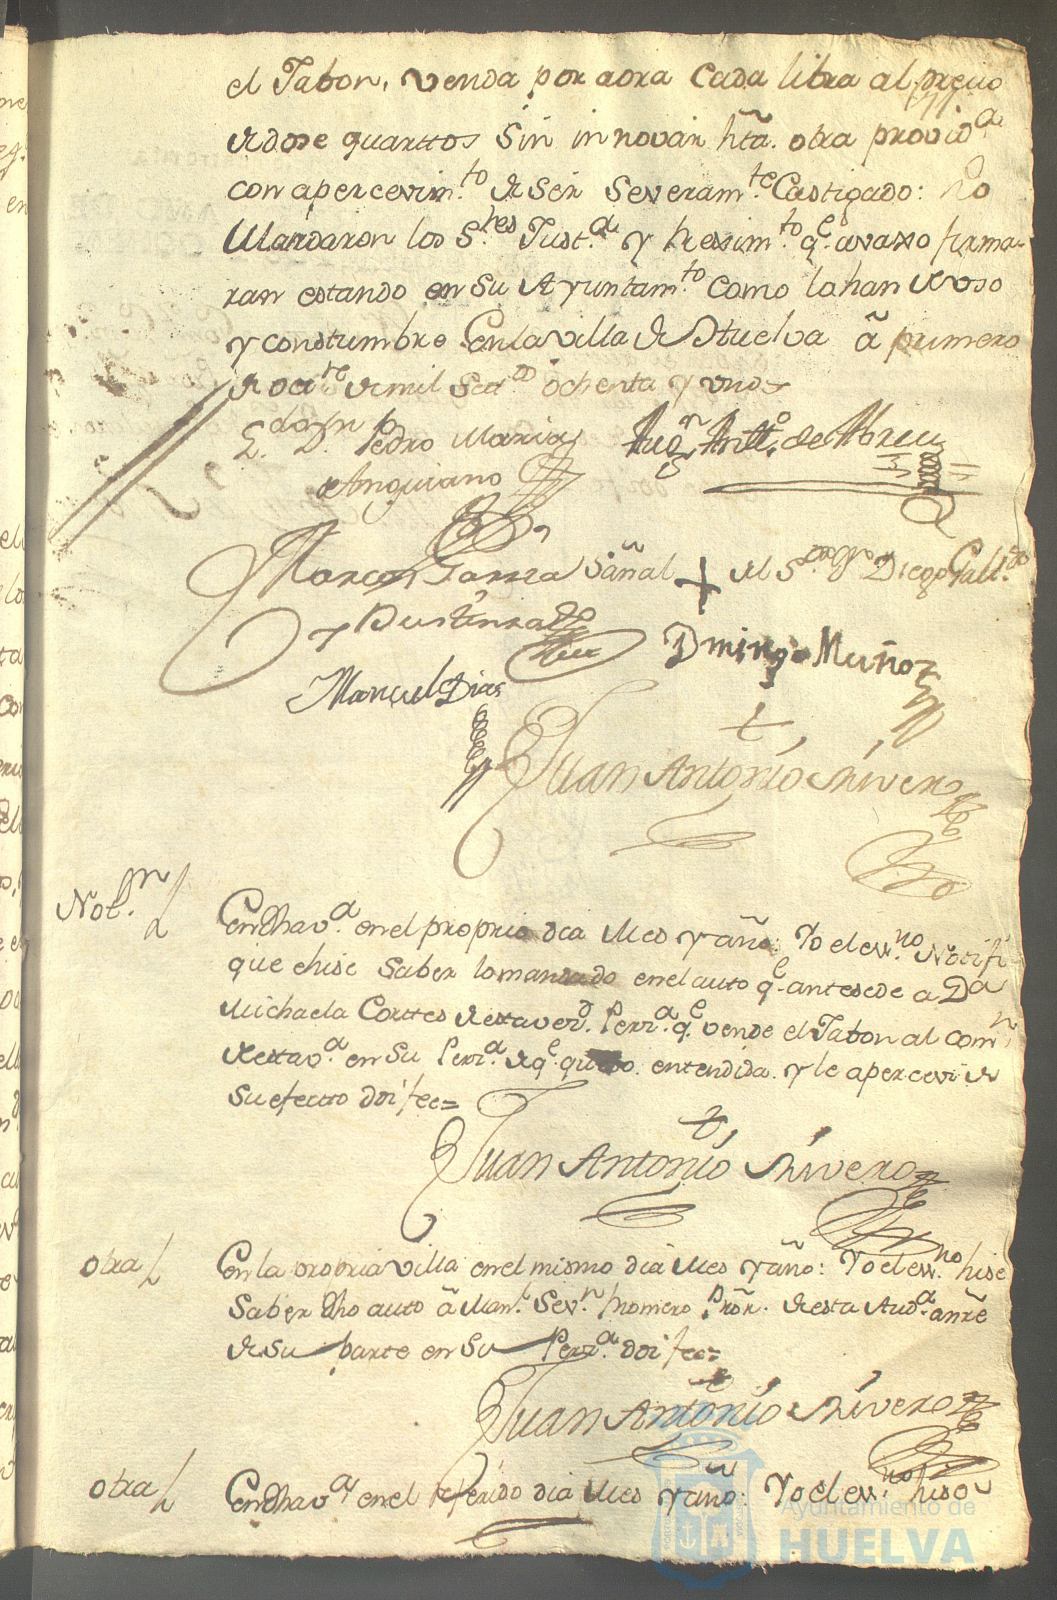 el Jabon, venda por aora cada libra al precio
de dose quarttos sin innovar htã. otra provid.ª
con apercevim.to de ser severam.te Castigado: Lo
Mandaron los S.res Just.ª y Regim.to q.e avaxo firma-
ran estando en su Ayuntam.to como lo han de uso
y constumbre En la villa de Huelva ã primero
de oct.re de mil Set.os ochenta y uno
L. D. Pedro Maria
de Anguiano
Aug.n Antt.o de Abreu
Marcos Garzia
Señal + del S.or Diego Gall.do
y Bustinza
Domingo Muñoz
Manuel Dias
Juan Antonio Rivero
Not.n
En dha v.ª en el proprio dia Mes y año: Yo el ess.no Notifi-
que e hise Saber lo mandado en el auto q.e antesede a D.ª
Michaela Corttes de esta vez.d Perz.ª q.e vende el Jabon al com.n
de esta v.ª en su Perz.ª de q.e quedo entendida y le apercevi de
Su efectto doi fee=
Juan Antonio Rivero
otra
En la propria villa en el mismo dia Mes y año: Yo el ess.no hise
Saber dho auto ã Man.l Sev.n Romero P.rõr. de esta Aud.ª
de su parte en su Perz.ª doi fee=
Juan Antonio Rivero
otra
En dha v.ª en el referido dia Mes y año: Yo el ess.no hise
Ayuntamiento de
HUELVA